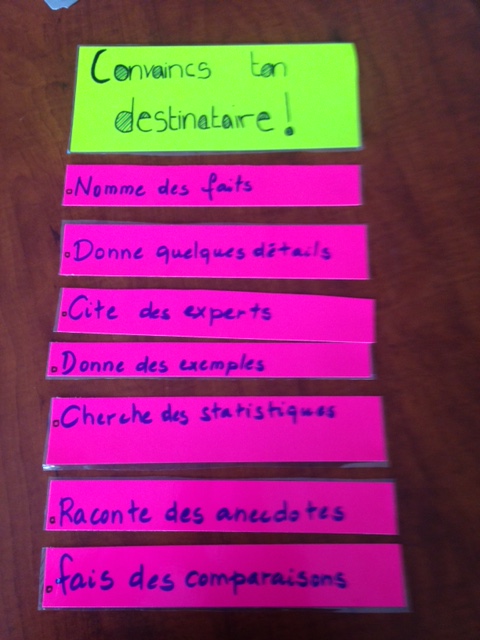 Convaincs ton
destinataire!
Nomme des faits
Donne quelques détails
Cite des experts
Donne des exemples
Cherche des statistiques
Raconte des anecdotes
fais des comparaisons